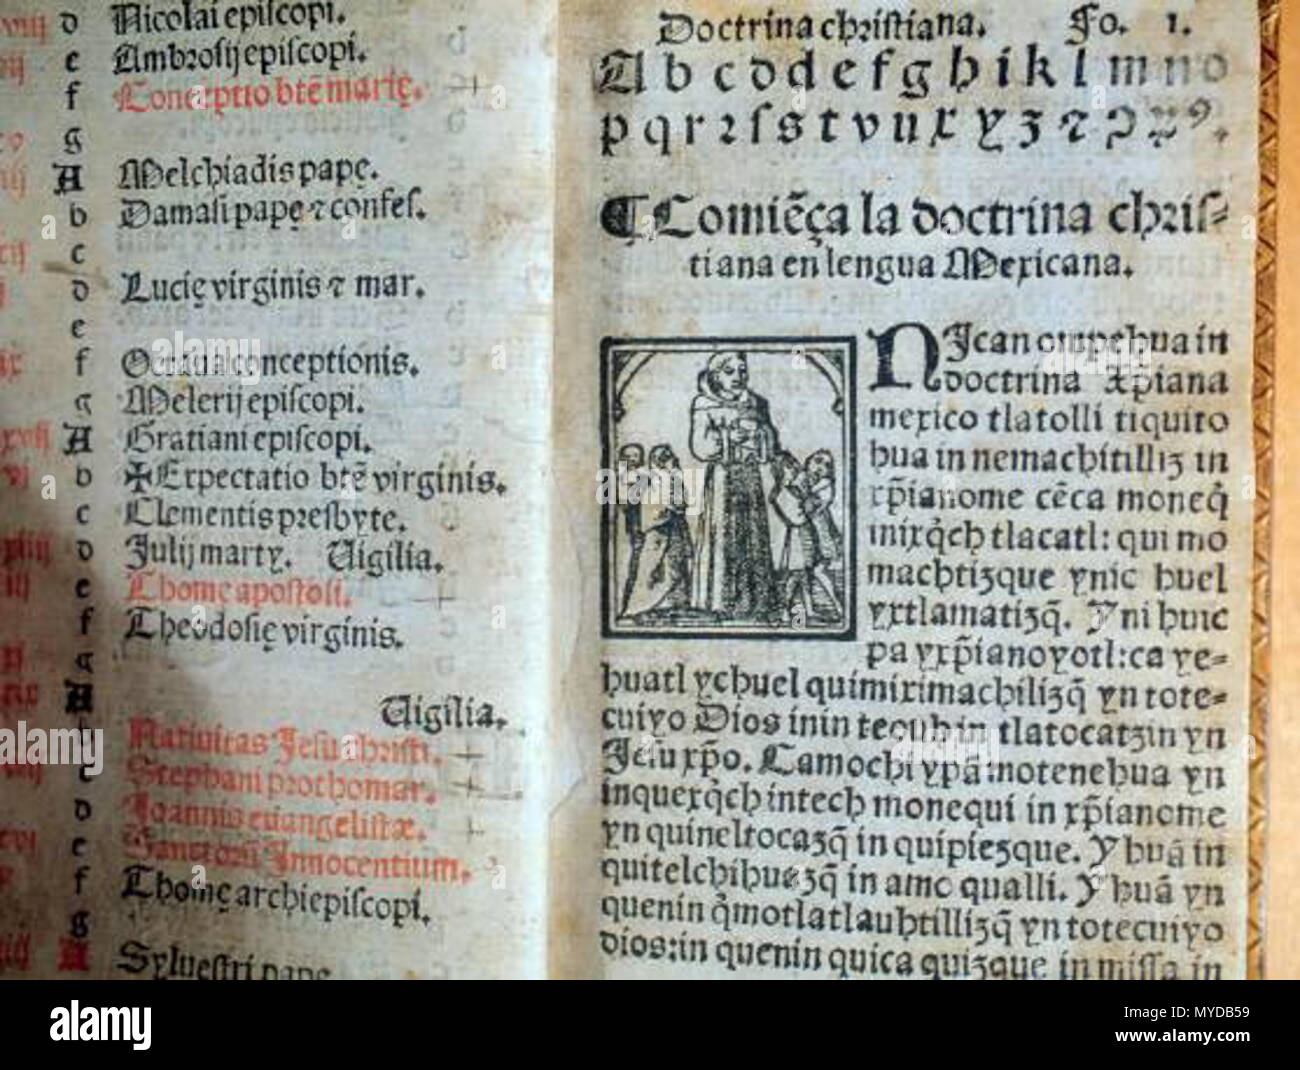 d Nicolai episcopi.
e Ambrosij episcopi.
f Conceptio btē marię.
g
A Melchiadis papę.
b Damasi papę ⁊ confes.
c
d Lucię virginis ⁊ mar.
e
f Octaua conceptionis.
g Melerij episcopi.
A Gratiani episcopi.
b ✠ Expectatio btē virginis.
c Clementis presbyte.
d Julij marty. Uigilia.
e Thomę apostoli.
f Theodosię virginis.
g
A Uigilia.
b Natiuitas Jesu christi.
c Stephani prothomar.
d Joannis euangelistæ.
e Sanctorū Innocentium.
f Thomę archiepiscopi.
g
A Syluestri pape
Doctrina christiana. Fo. 1.
A b c d d e f g h i k l m n o
p q r ꝛ ſ s t v u x y z ⁊
¶ Comiēça la doctrina chris-
tiana en lengua Mexicana.
NJcan ompehua in
doctrina xp̄iana
mexico tlatolli tiquito
hua in nemachitilliz in
xp̄ianome cēca moneq̄
mixq̄ch tlacatl: qui mo
machtizque ynic huel
yxtlamatizq̄. Y ni huic
pa yxp̄ianoyotl: ca ye-
huatl ychuel quimiximachilizq̄ yn tote-
cuiyo Dios inin tecuh in tlatocatzin yn
Jesu xp̄o. Camochi ypā motenehua yn
inquexq̄ch intech monequi in xp̄ianome
yn quineltocazq̄ in quipiezque. Y huā in
quitelchihuazq̄ in amo qualli. Y huā yn
quenin q̄motlatlauhtillizq̄ yn totecuiyo
dios: in quenin quica quizque in missa in
alamy
MYDB59
www.alamy.com